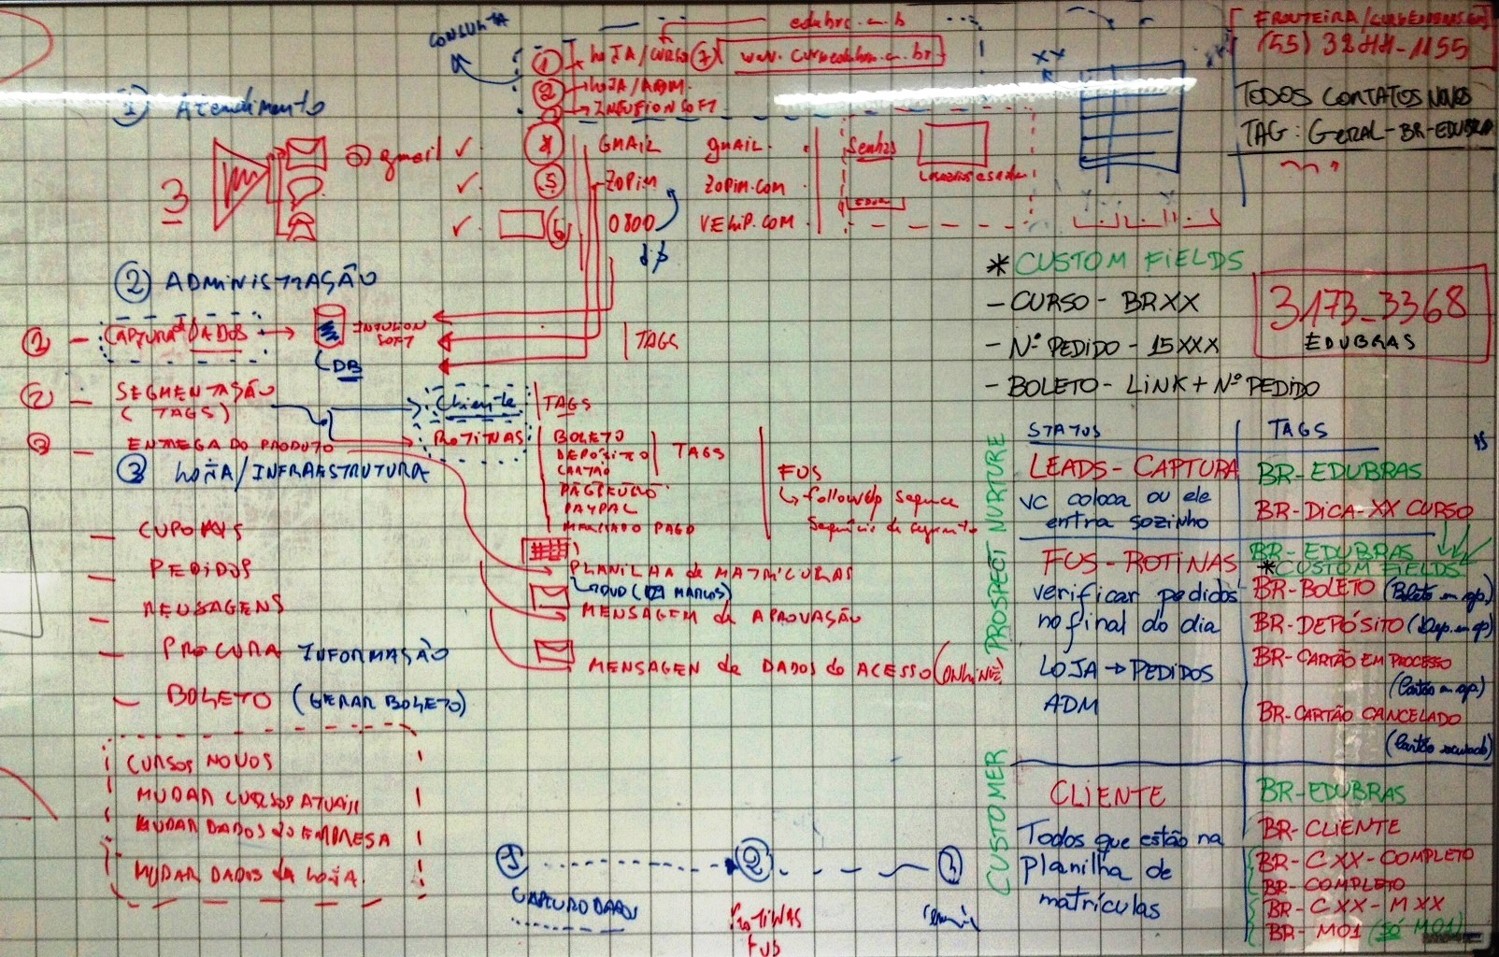 CONSULTA
edubrc.c.m.b
① LOJA/CURSO ⑦
② LOJA/ADM.
INFUSIONSOFT
① Atendimento
3
③ gmail ✓
④ GMAIL gmail.
⑤ ZOPIM ZOPIM.COM
⑥ 0800 VEHIP.COM
Senhas
XX
(55) 3244-1155
TODOS CONTATOS NOVOS
TAG: GERAL-BR-EDUBRA
② ADMINISTRAÇÃO
① - CAPTURA DADOS
INFUSION
SOFT
DB
TAGS
② - SEGMENTAÇÃO
(TAGS)
Cliente
TAGS
③ - ENTREGA DO PRODUTO
ROTINAS
BOLETO
DEPOSITO
CARTÃO
PAGSEURO
PAYPAL
MERCADO PAGO
TAGS
FUS
↳ followUp sequence
③ LOJA/INFRAESTRUTURA
- CUPONS
- PEDIDOS
- MENSAGENS
- PROCURA INFORMAÇÃO
- BOLETO (GERAR BOLETO)
PLANILHA de MATRICULAS
NOVO (MARCOS)
MENSAGEM de APROVAÇÃO
MENSAGEN de DADOS do ACESSO (ONLINE)
CURSOS NOVOS
MUDAR CURSOS ATUAIS
MUDAR DADOS DO EMPRESA
MUDAR DADOS da LOJA.
① ② ③
CAPTURO DADOS
ROTINAS
FUS
* CUSTOM FIELDS
- CURSO - BRXX
- Nº PEDIDO - 15XXX
- BOLETO - LINK + Nº PEDIDO
3173_3368
EDUBRAS
STATUS TAGS
PROSPECT NURTURE
LEADS - CAPTURA
vc coloca ou ele
entra sozinho
BR-EDUBRAS
BR-DICA-XX CURSO
FUS - ROTINAS
verificar pedidos
no final do dia
LOJA → PEDIDOS
ADM
BR-EDUBRAS
*CUSTOM FIELDS
BR-BOLETO (Boleto em op)
BR-DEPÓSITO (Dep. em op)
BR-CARTÃO EM PROCESSO
(Cartão em op)
BR-CARTÃO CANCELADO
(Cartão recusado)
CUSTOMER
CLIENTE
Todos que estão na
planilha de
matrículas
BR-EDUBRAS
BR-CLIENTE
BR-CXX-COMPLETO
BR-COMPLETO
BR-CXX-MXX
BR-M01 (SÓ M01)